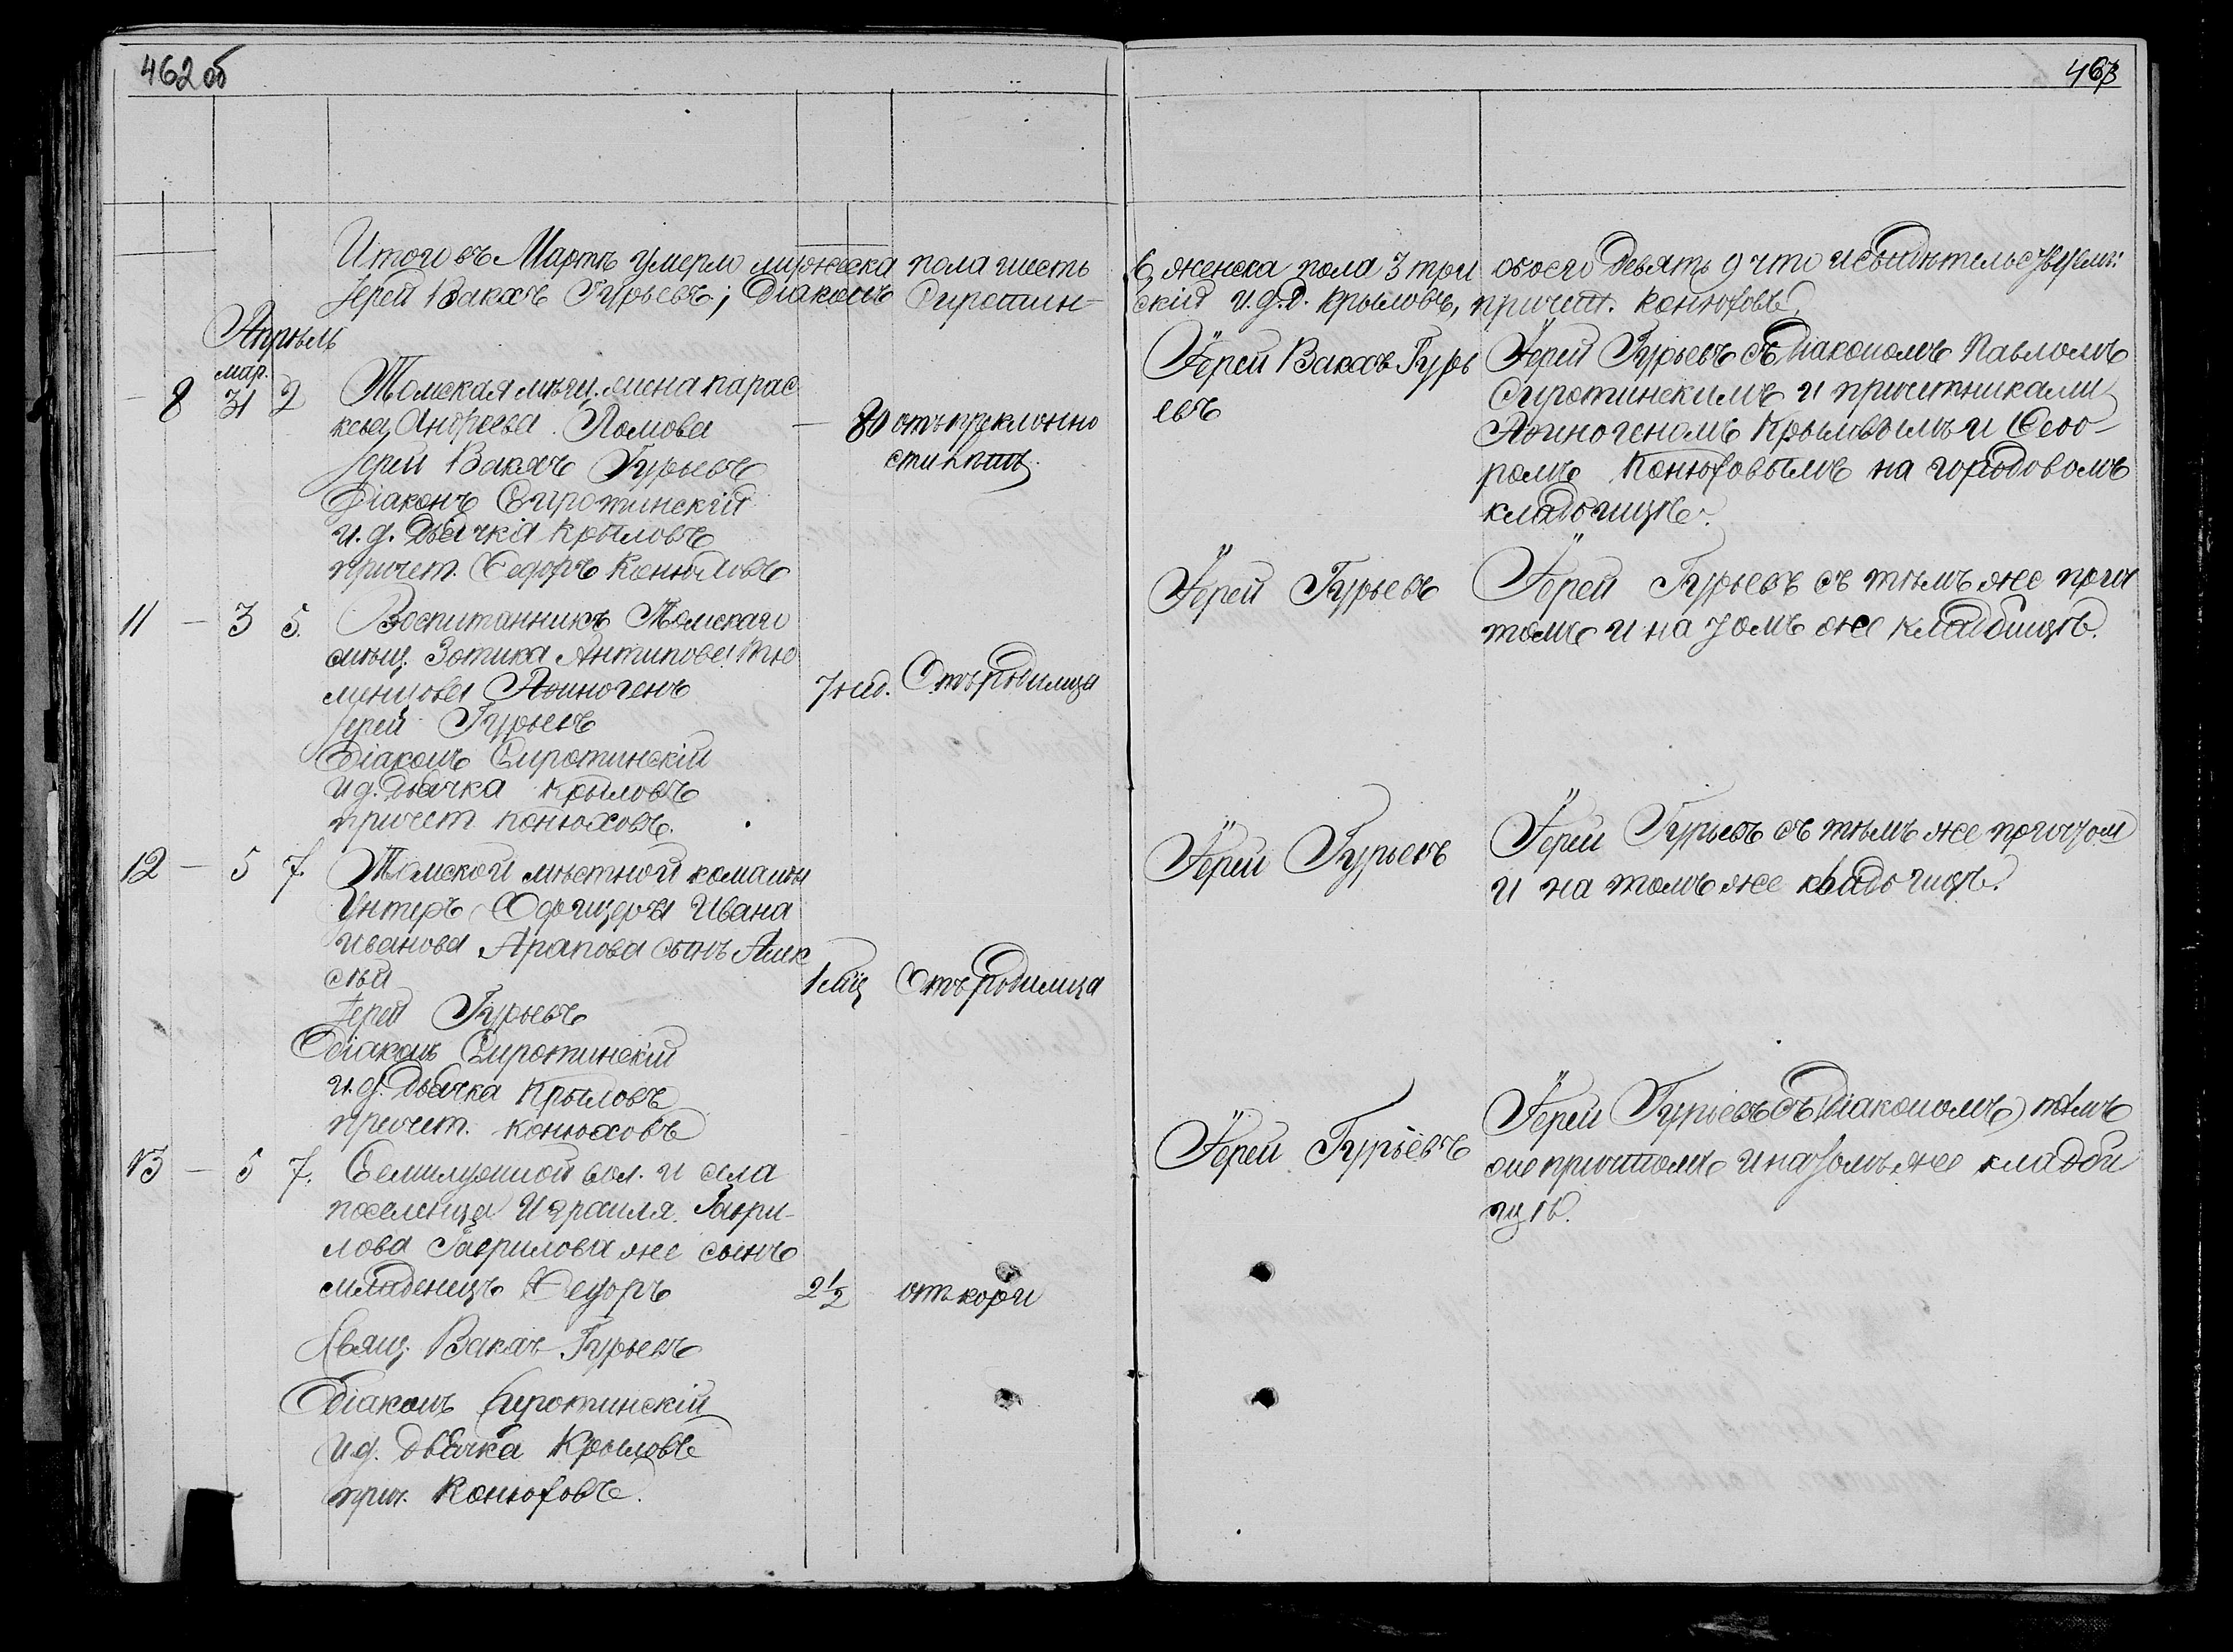 462 об
463
Итого въ Мартѣ умерло мужеска пола шесть 6, женска пола 3 три обоего девять 9 что и свидѣтельствуемъ:
Іерей Вакхъ Гурьевъ; Діаконъ Сиротинскій и.д.д. Крыловъ, причет. Конюховъ.
Апрѣль
мар.
8 31 2 Томская мѣщ. жена Парас
кева Андреева Ломова — 80 отъ преклонно
сти лѣтъ.
Іерей Вакхъ Гурьевъ
Діаконъ Сиротинскій
и.д. Дьячка Крыловъ
причет. Федоръ Конюховъ
Іерей Вакхъ Гурь
евъ
Іерей Гурьевъ съ Діакономъ Павломъ
Сиротинскимъ и причетниками
Аѳиногеномъ Крыловымъ и Ѳеодо
ромъ Конюховымъ на городовомъ
кладбищѣ.
11 — 3 5. Воспитанникъ Томскаго
мѣщ. Зотика Антипова Тю
менцова Аѳиногенъ 7 нед. Отъ родимца
Іерей Гурьевъ
Діаконъ Сиротинскій
и д. Дьячка Крыловъ
причет Конюховъ.
Іерей Гурьевъ
Іерей Гурьевъ съ тѣмъ же прич
томъ и на томъ же кладбищѣ.
12 — 5 7. Томской мѣстной команды
Унтеръ Офицера Ивана
Иванова Арапова сынъ Алек
сѣй 1 мѣс Отъ родимца
Іерей Гурьевъ
Діаконъ Сиротинскій
и.д. Дьячка Крыловъ
причет. Конюховъ
Іерей Гурьевъ
Іерей Гурьевъ съ тѣмъ же причтом
и на томъ же кладбищѣ.
13 — 5 7. Семилужной вол. и села
поселенца Израиля Гаври-
лова Гаврилова же сынъ
младенецъ Ѳедоръ 2½ отъ кори
Свящ. Вакхъ Гурьевъ
Діаконъ Сиротинскій
и д. Дьячка Крыловъ
прич. Конюховъ.
Іерей Гурьевъ
Іерей Гурьевъ съ Діакономъ тѣмъ
же причтомъ и на томъ же кладби
щѣ.